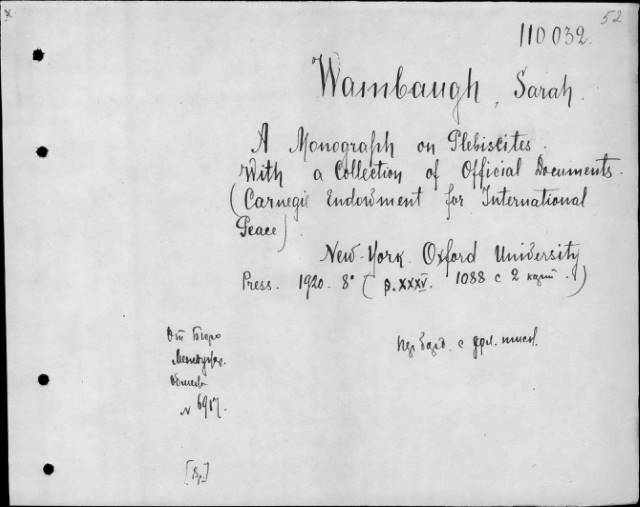 52
110032.
Wambaugh, Sarah.
A Monograph on Plebiscites.
With a Collection of Official Documents.
(Carnegie Endowment for International
Peace)
New-York. Oxford University
Press. 1920. 8° (p. XXXV. 1088 с 2 карт.)
От Бюро
Международ.
Обмена
N 6917.
[Вр.]